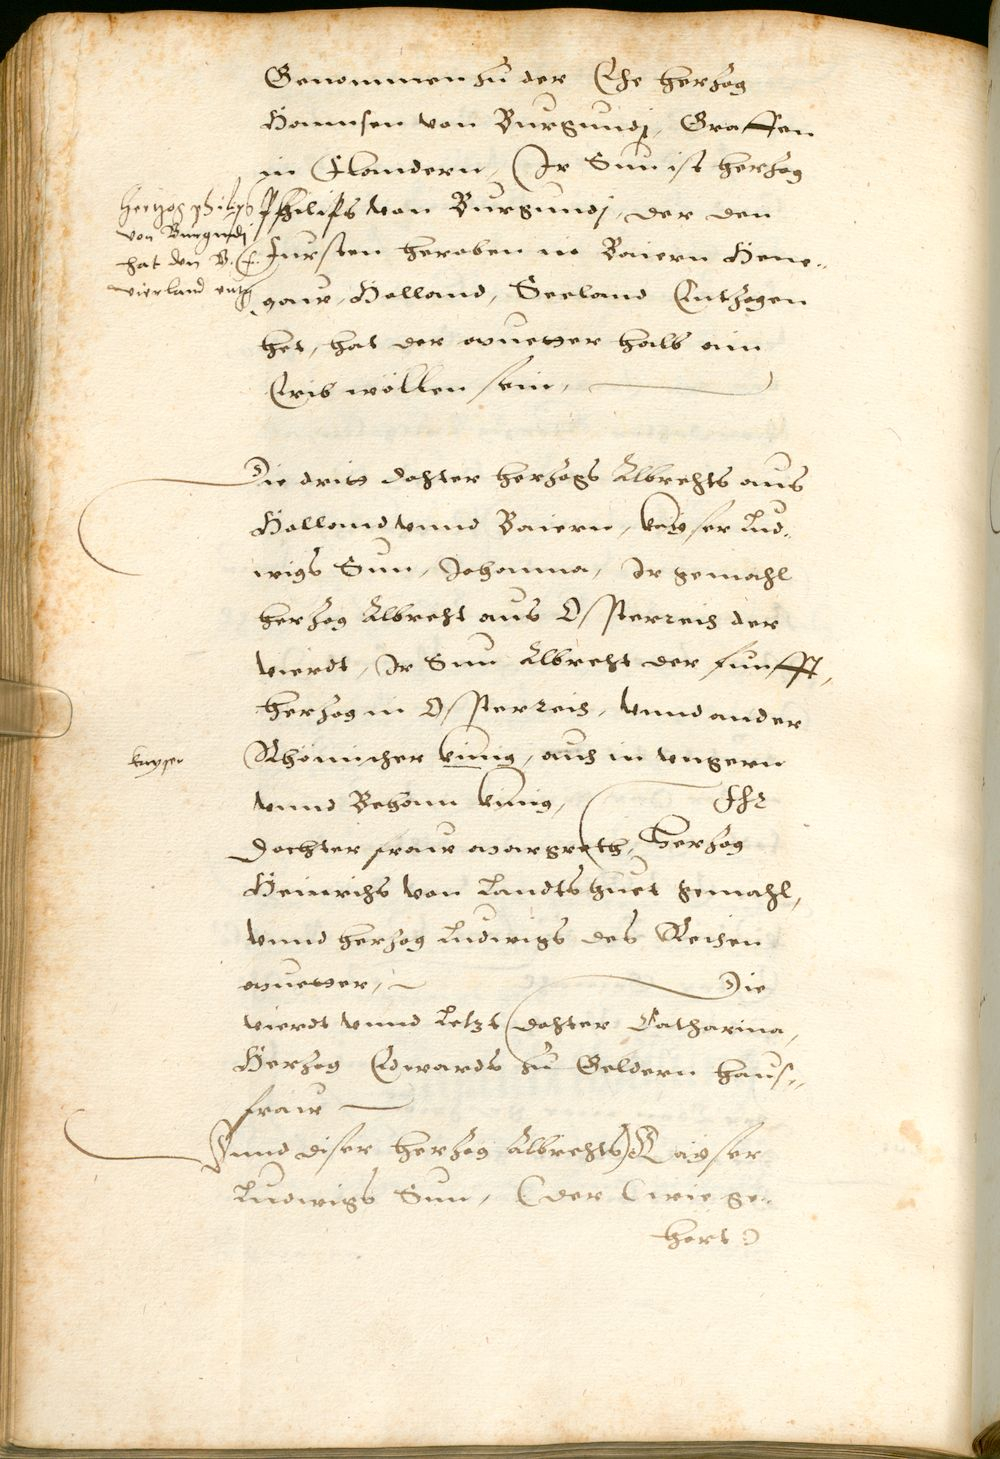 Genommen zu der Ehe herzog
Hannsen von Burgundj, Graffen
in Flandern, Ir Sun ist herzog
Philips von Burgundj, der den
Fursten heroben in Baiern Hene-
gaw, Holland, Seeland Entzogen
het, hat der mueter halb ain
Erib wöllen sein,
hertzog philips
von Burgundj
hat den B. F.
vierland entz
Die drit dohter herzogs Albrehts aus
Holland vnnd Baiern, kayser Lud-
wigs Sun, Johanna, Ir gemahl
herzog Albreht aus Ossterreich der
vierdt, Ir Sun Albreht der funfft,
herzog in Ossterreich, vnnd ander
Rhömischer künig, auch in vngern
kayser
vnnd Beham künig, Ihr
Dochter fraw margreth, Herzog
Heinrichs von Landtshuet gemahl,
vnnd herzog Ludwigs des Reichen
mueter, Die
vierdt vnnd letzt dohter Catharina,
Herzog Edwards zu Geldern haus-
fraw
Vnnd diser herzog Albrehts Kayser
Ludwigs Sun, (der (wie ge-
hort)